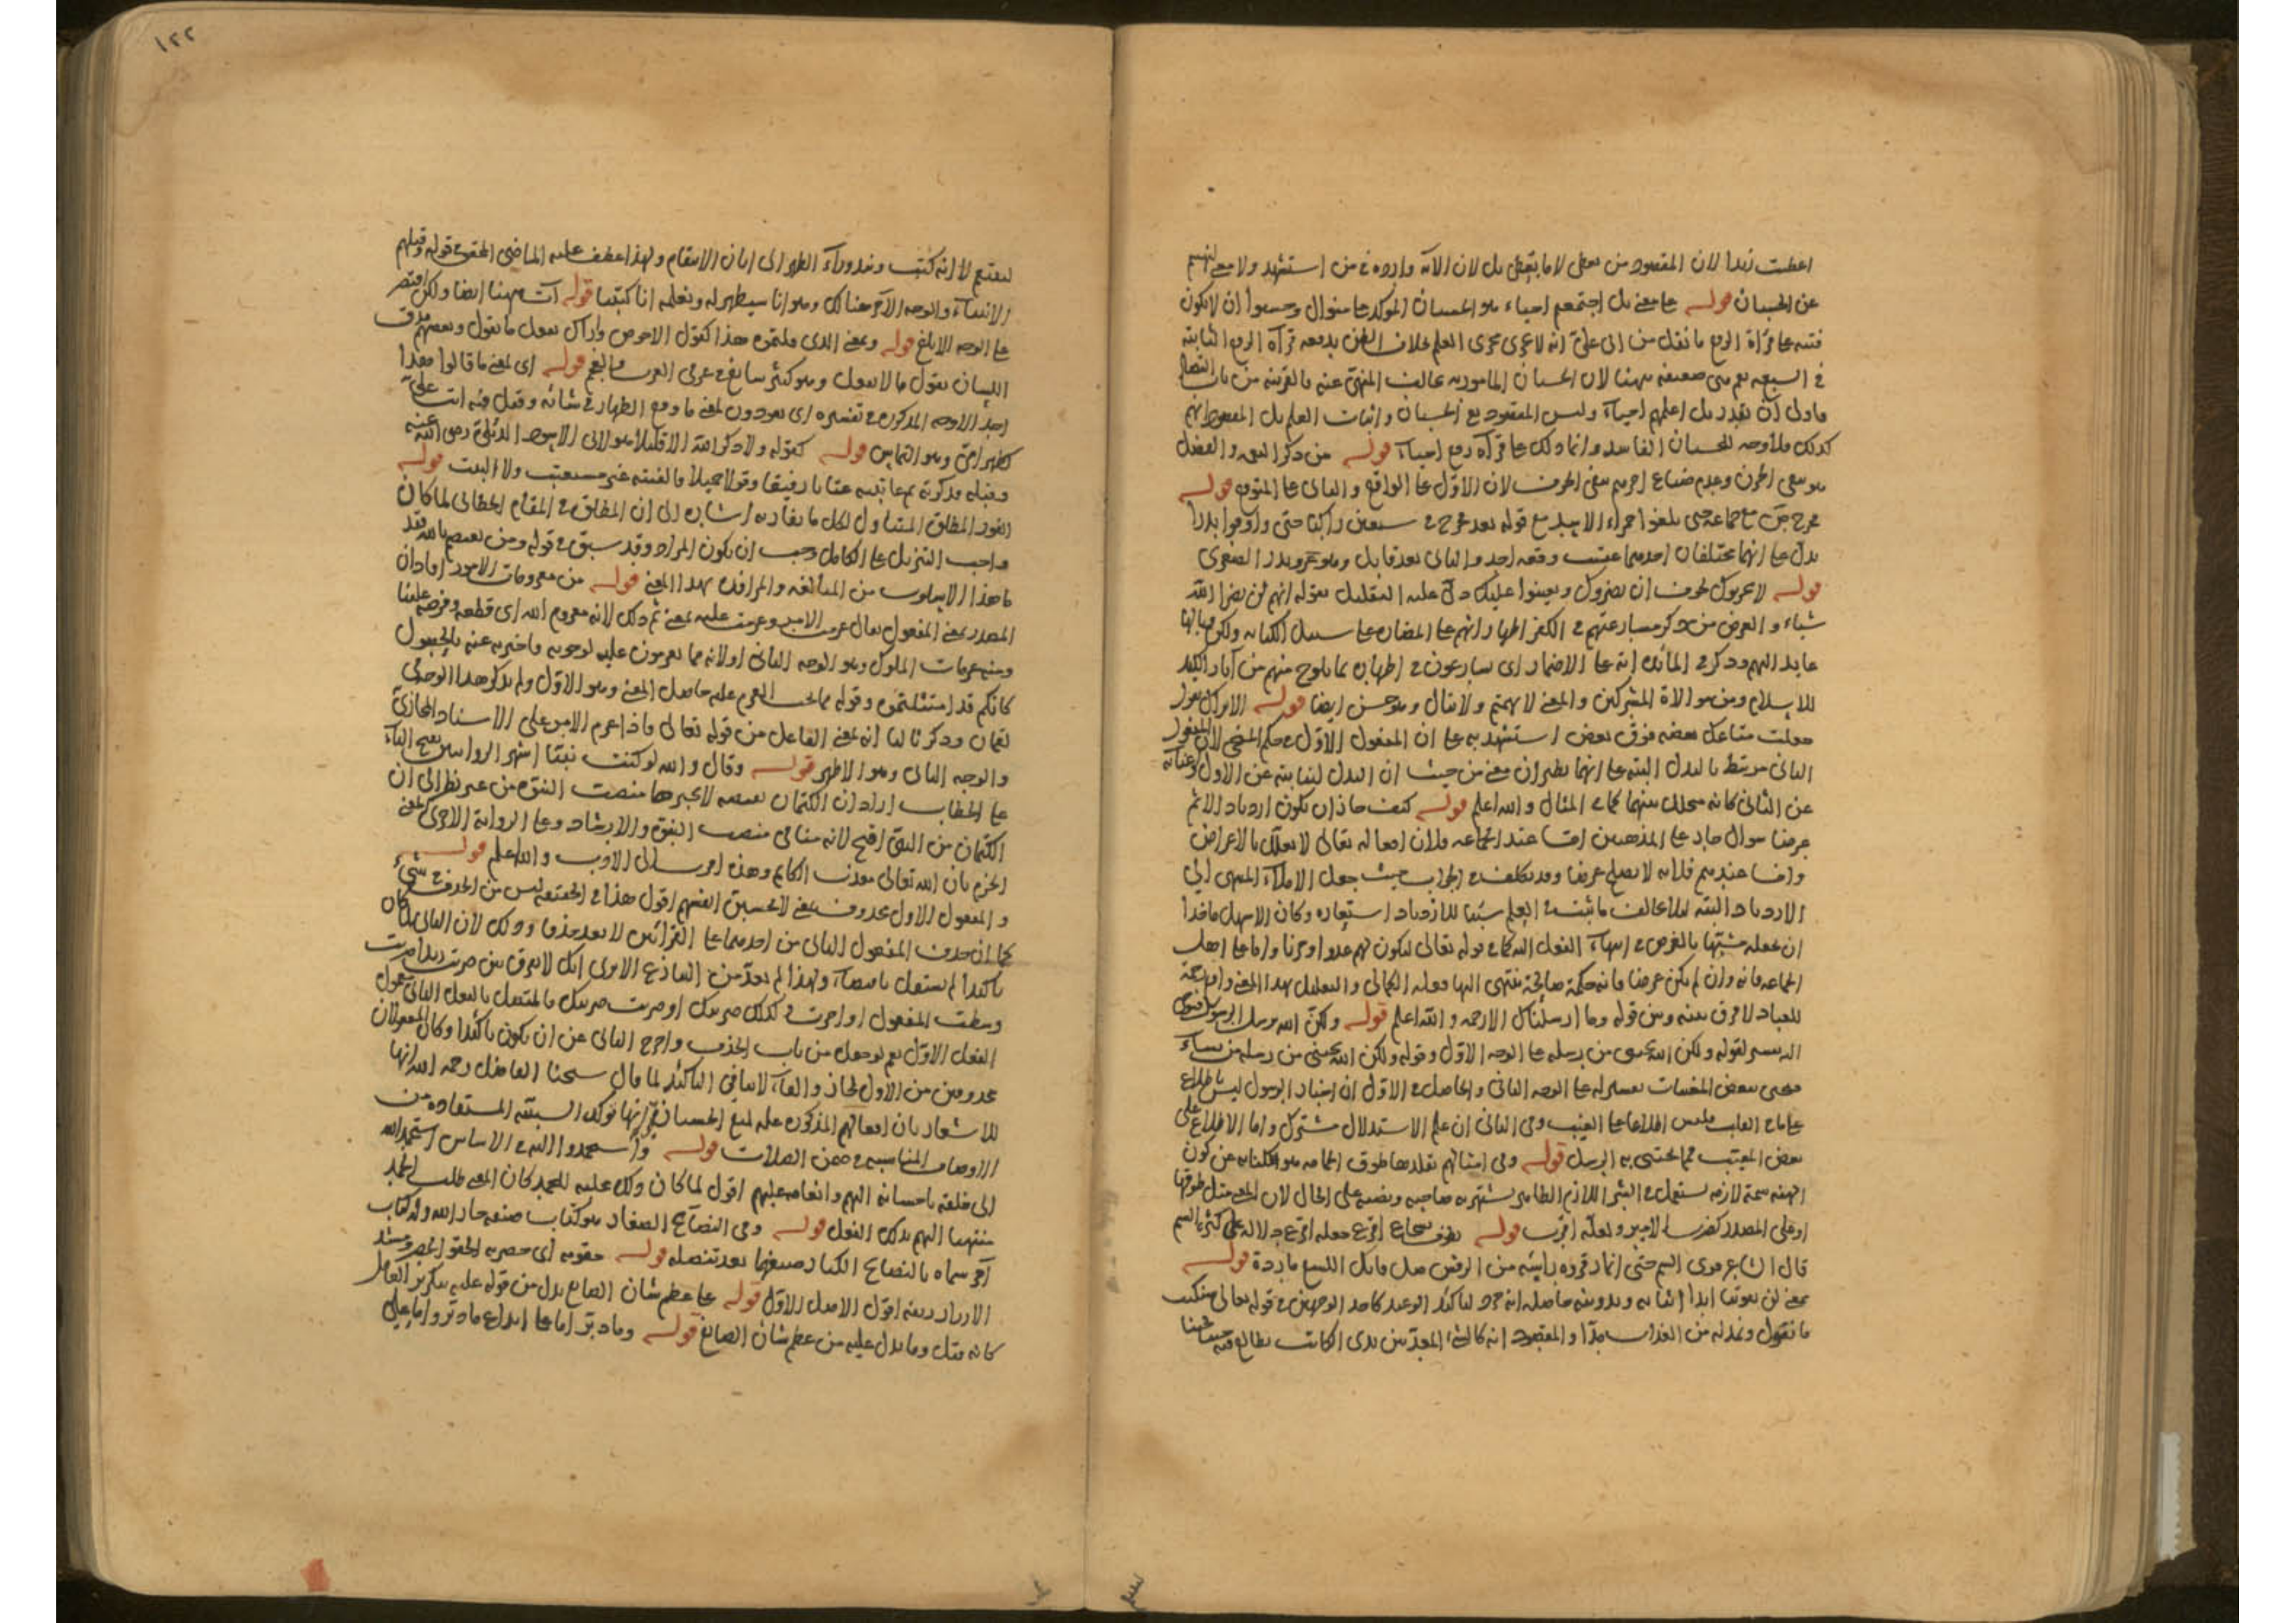 اعطيت زيدا لان المقصود من يعطى لا ما يعطى بل لان الآية واردة في من استشهد ولا معنى لنهيهم
عن الحسبان قوله على معنى بل احسبهم احياء هو الحسبان المؤكد على منوال وحسبوا ان لا يكون
فتنة على قراءة الرفع ما نقل من ابي علي انه لا يجرى مجرى العلم بخلاف الظن يدفعه قراءة الرفع الثابتة
في السبعة نعم هي ضعيفة ههنا لان الحسبان المأمور به يخالف المنهي عنه فالقرينة من باب
فاولى ان يقدر بل اعلمهم احياء وليس المقصود نفي الحسبان واثبات العلم بل المقصود انهم
كذلك فلا وجه للحسبان الفاسد وانما ذلك على قراءة رفع احياء قوله من ذكر النعمة والفضل
هو نفي الحزن وعدم ضياع اجرهم نفي الخوف لان الاول على الواقع والثاني على المتوقع قوله
خرج من مع جماعة حتى بلغوا حمراء الاسد مع قوله بعد فخرج في سبعين راكبا حتى وافوا بدرا
يدل على انهما مختلفان احدهما عقيب وقعة احد والثاني بعد قابل وهو غزو بدر الصغرى
قوله لا يحزنوك لخوف ان يضروك ويعينوا عليك دل عليه التعليل بقوله انهم لن يضروا الله
شيئا والغرض من ذكر مسارعتهم في الكفر اظهار انهم على المضارة على سبيل الكناية ولكن
عائد اليهم وذكر في المائدة انه على الاضمار اي يسارعون في اظهاره بما يلوح منهم من آثار الكيد
للاسلام ومن موالاة المشركين والمعنى لا تهتم ولا تبال وهو حسن ايضا قوله الا تراك تقول
جعلت متاعك بعضه فوق بعض استشهد به على ان المفعول الاول في حكم المنحى لان المفعول
الثاني مرتبط بالبدل البتة على انهما نظيران معنى من حيث ان البدل لنيابته عن الاول وغنائه
عن الثاني كانه محلل بينهما كما في المثال والله اعلم قوله كيف جاز ان يكون ازدياد الاثم
غرضا سؤال جار على المذهبين اما عند الجماعة فلان افعاله تعالى لا تعلل بالاغراض
واما عندهم فلانه لا يصلح غرضا وقد تكلف في الجواب حيث جعل الاملاء المنتهى الى
الازدياد البتة لما يخالف ما ثبت في العلم سببا للازدياد استعارة وكان الاسهل ماخذا
ان يجعله مشبها بالغرض في انتهاء الفعل اليه كما في قوله تعالى ليكون لهم عدوا وحزنا واما على اصل
الجماعة فانه وان لم يكن غرضا فانه حكمة صالحة ينتهي اليها فعله الكمالي والتعليل بهذا المعنى
للعباد لا فرق بينه وبين قوله وما ارسلناك الا رحمة والله اعلم قوله ولكن الله يرسل الرسول
انه تفسير لقوله ولكن الله يجتبي من رسله على الوجه الاول وقوله ولكن الله يجتبي من رسله من يشاء
فيخبره ببعض المغيبات تفسير له على الوجه الثاني والحاصل في الاول ان اخبار الرسول ليس باطلاع
على ما في القلب فليس اطلاعا على الغيب وفي الثاني ان علم الاستدلال مشترك واما الاطلاع على
بعض الغيب فمما يختص به الرسل قوله وفي امثالهم تقلدها طوق الحمامة هو الكناية عن كون
الهنة سمة لازمة يستعمل في الشر اللازم الظاهر يشتهر به صاحبه ونصبه على الحال لان المعنى مثل طوقها
او على المصدر كضرب الامير ولعله اقرب قوله بطوق شجاع اقرع جعله اقرع دلالة على كثرة السم
قال الشاعر قرى السم حتى انماز فروة راسه من الرقش صل فاتك اللسع ما رده قوله
يعني لن يفوتنا ابدا اثباته وتدوينه حاصله انه جرد لتاكيد الوعيد كاحد الوجهين في قوله تعالى سنكتب
ما يقول ونمد له من العذاب مدا والمقصود انه كالشيء المعد بين يدي الكاتب يطالع فيه
١٢٢
لينتقم لا انه كتب ونبذ وراء الظهر الى ابان الانتقام ولهذا عطف عليه الماضي المحقق قوله وقتلهم
الانبياء والوجه الآخر هنالك وهو انا سيظهر له ونعلمه انا كتبنا قوله آت ههنا ايضا ولكن اقتصر
على الوجه الابلغ قوله وبمعنى الذي قلتموه هذا كقول الاحوص واراك تفعل ما تقول وبعضهم مذق
اللسان يقول ما لا يفعل وهو كثير سائغ في عرفي العرب والعجم قوله اي لمعنى ما قالوا فهذا
احد الاوجه المذكورة في تفسيره اي يعودون لمعنى ما وقع الظهار في شانه وقيل فيه انت علي
كظهر امي وهو التماس قوله كقوله ولا ذاكر الله الا قليلا هو لابي الاسود الدئلي رضي الله عنه
وقبله فذكرته ثم عاتبته عتابا رفيقا وقولا جميلا فالفيته غير مستعتب ولا البيت قوله
الفوز المطلق المتناول لكل ما يفاز به اشارة الى ان المطلق في المقام الخطابي لما كان
واجب التنزيل على الكامل وجب ان يكون المراد وقد سبق في قوله ومن يعتصم بالله فقد
ما هذا الاسلوب من المبالغة والمرافدة بهذا المعنى قوله من معزومات الامور افاد ان
المصدر بمعنى المفعول يقال عزمت الامر وعزمت عليه بمعنى ثم ذلك لانه معزوم الله اي قطعه وفرضه علينا
ومنه عزمات الملوك وهو الوجه الثاني او لانه مما يعزمون عليه لوجوبه فاخبر به عنه بالحصول
كانكم قد امتثلتموه وقوله مما يجب العزم عليه حاصل المعنى وهو الاول ولم يذكر هذا الوجه في
لقمان وذكر ثالثا انه بمعنى الفاعل من قوله تعالى فاذا عزم الامر على الاسناد المجازي
والوجه الثاني وهو الاظهر قوله وقال والله لو كنت نبيا اشهر الروايتين بفتح التاء
على الخطاب اراد ان الكتمان نقيصة لا يجبرها منصب النبوة من غير نظر الى ان
الكتمان من النبي اقبح لانه مناف منصب النبوة والارشاد وعلى الرواية الاخرى المعنى
الجزم بان الله تعالى معذب الكاتم وهذه اقرب الى الادب والله اعلم قوله
والمفعول الاول محذوف بمعنى لا يحسبن انفسهم اقول هذا في الحقيقة ليس من الحذف في شيء
كما ان حذف المفعول الثاني من احدهما على القراءتين لا يعد حذفا وذلك لان الثاني لما كان
تاكيدا لم يستقل باقتضاء ولهذا لم يعد من التنازع الاولى انك لا تفرق بين ضربت زيدا ضربت
وسطت المفعول او اخرت في كذلك ضربك او ضربت ضربك فالمتصل بالفعل الثاني مفعول
الفعل الاول نعم لو جعل من باب الحذف واخرج الثاني عن ان يكون تاكيدا وكان المفعولان
محذوفين من الاول لجاز والفاء لا ينافي التاكيد لما قال شيخنا الفاضل رحمه الله انها
للاشعار بان افعالهم المذكورة علة لمنع الحسبان فانها تؤكد السببية المستفادة من
الاوصاف المناسبة في ضمن الصلات قوله واستحمدوا اليه في الاساس استحمد الله
الى خلقه باحسانه اليهم وانعامه عليهم اقول لما كان ذلك علية للحمد كان المعنى طلب الحمد
منتهيا اليهم بذلك الفعل قوله وفي النصائح الصغار هو كتاب صنفه جار الله وله كتاب
آخر سماه بالنصائح الكبار صنفها بعد تنصله قوله حقوبه اي خصريه الحقو الخصر ومشد
الازار ريبة اقول الاصل الاول قوله على عظم شان الصانع بدل من قوله عليه بتكرير العامل
كانه قيل وما يدل عليه من عظم شان الصانع قوله وما دبر اما على ابداع ما دبر واما على